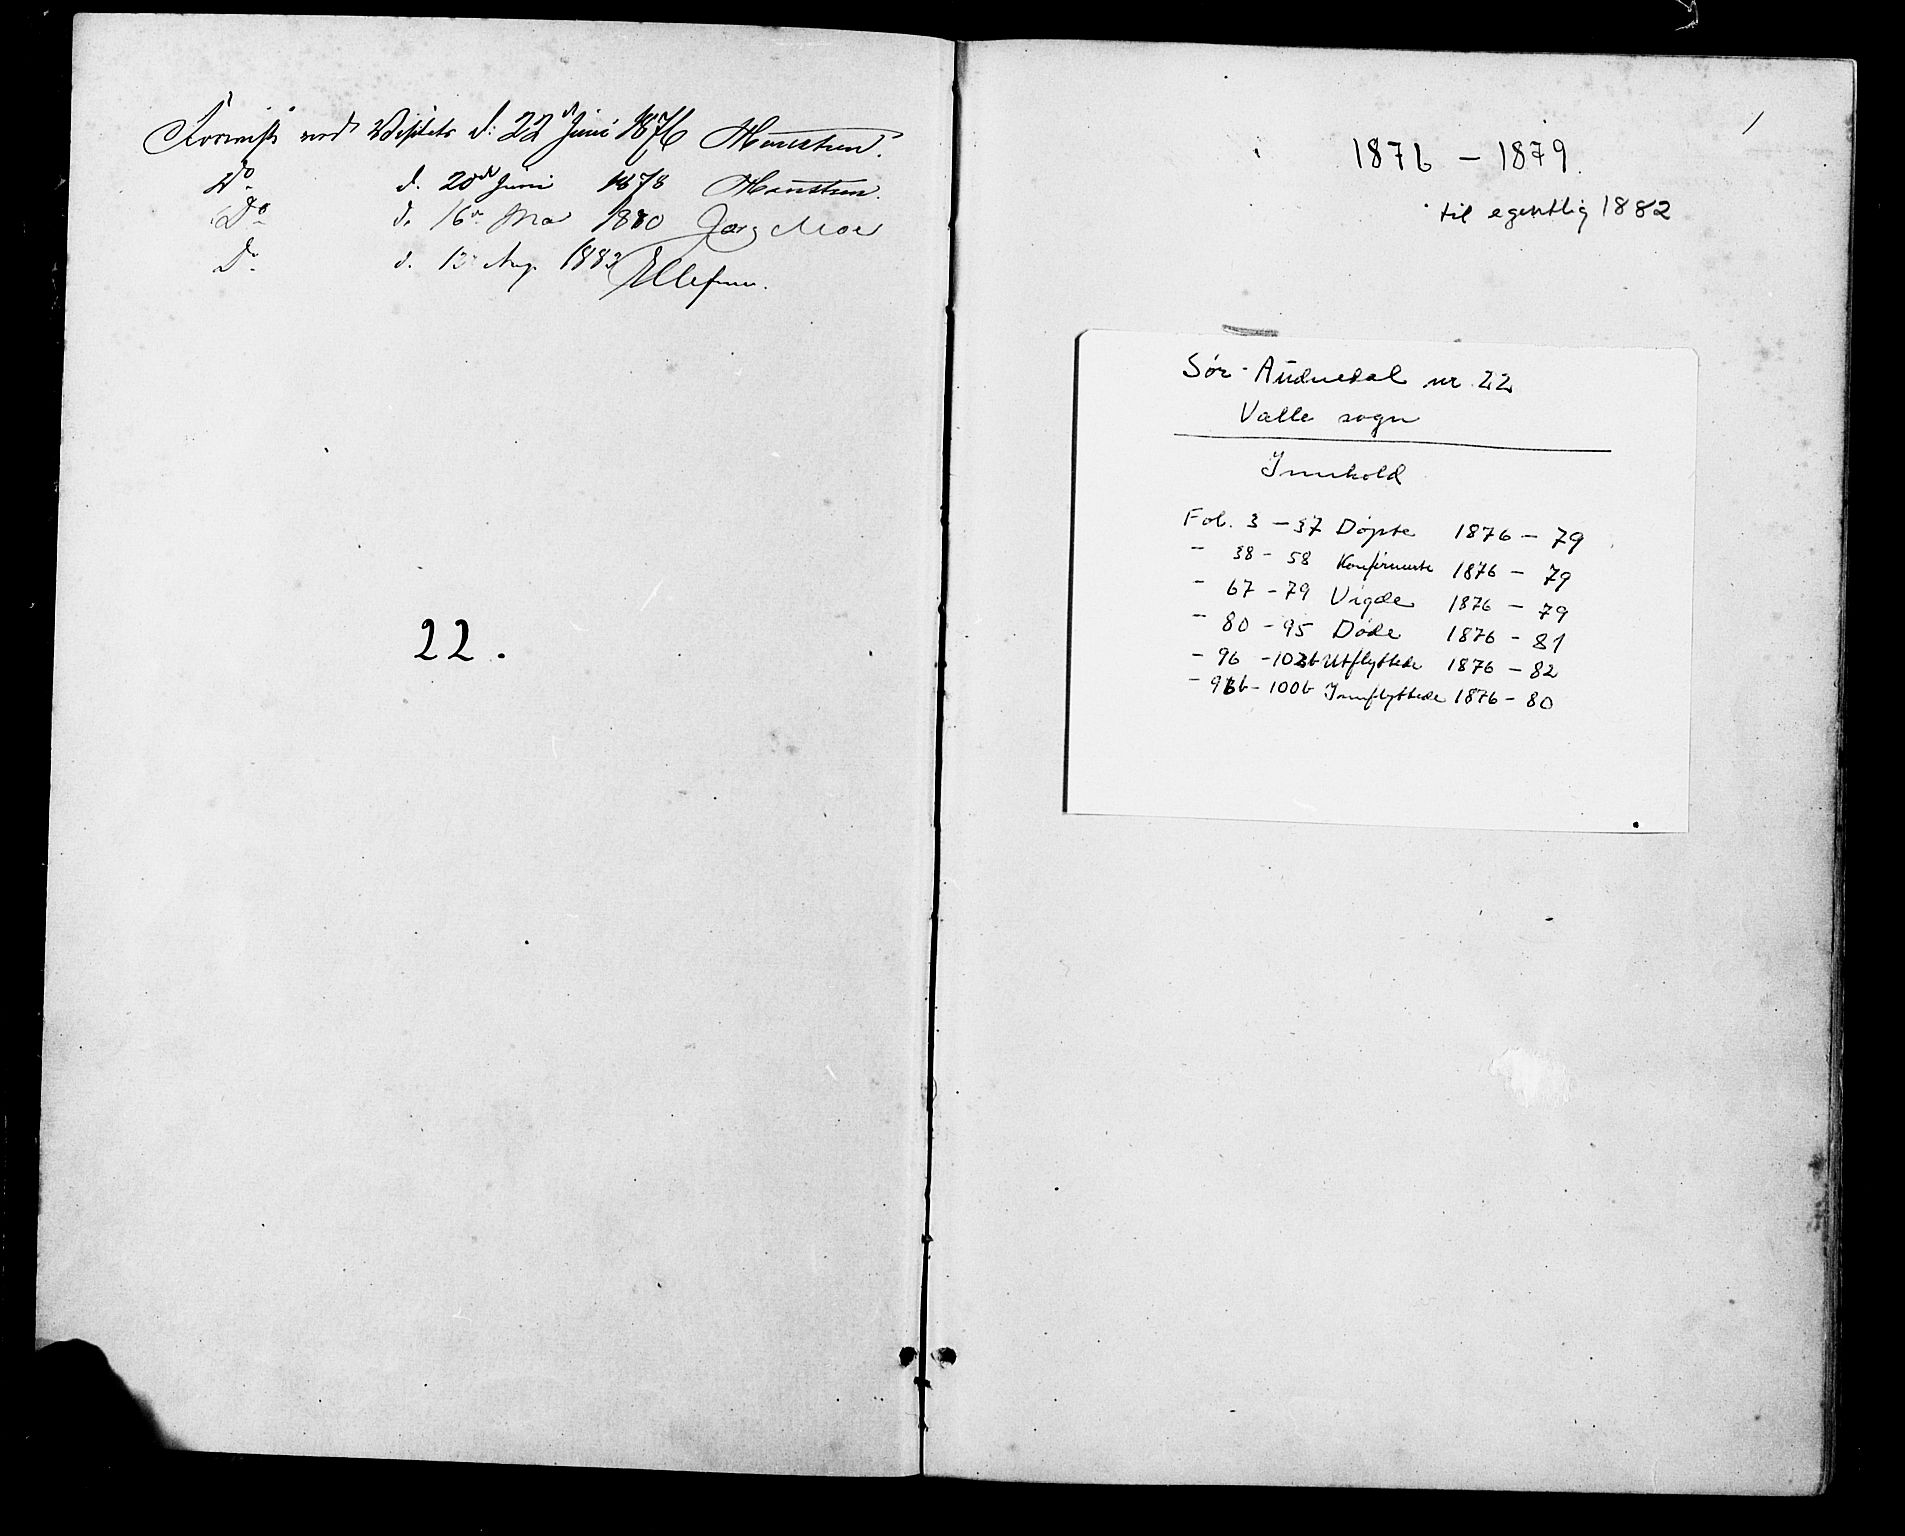 Forevist ved Visitats d: 22de Juni 1876 Monstrum.
Do d. 20de Juni 1878
Do d. 16de Mai 1880 Jørg Moe
Do d. Aug. 1883 Ellefsen.
22.
1
1876 – 1879.
til egentlig 1882
Sør-Audnedal nr 22
Valle sogn
Innhold
Fol. 3 – 37 Døpte 1876 – 79
– 38 – 58 Konfirmerte 1876 – 79
– 67 – 79 Vigde 1876 – 79
– 80 – 95 Døde 1876 – 81
– 96 – 102b Utflyttede 1876 – 82
– 96b – 100b Innflyttede 1876 – 80